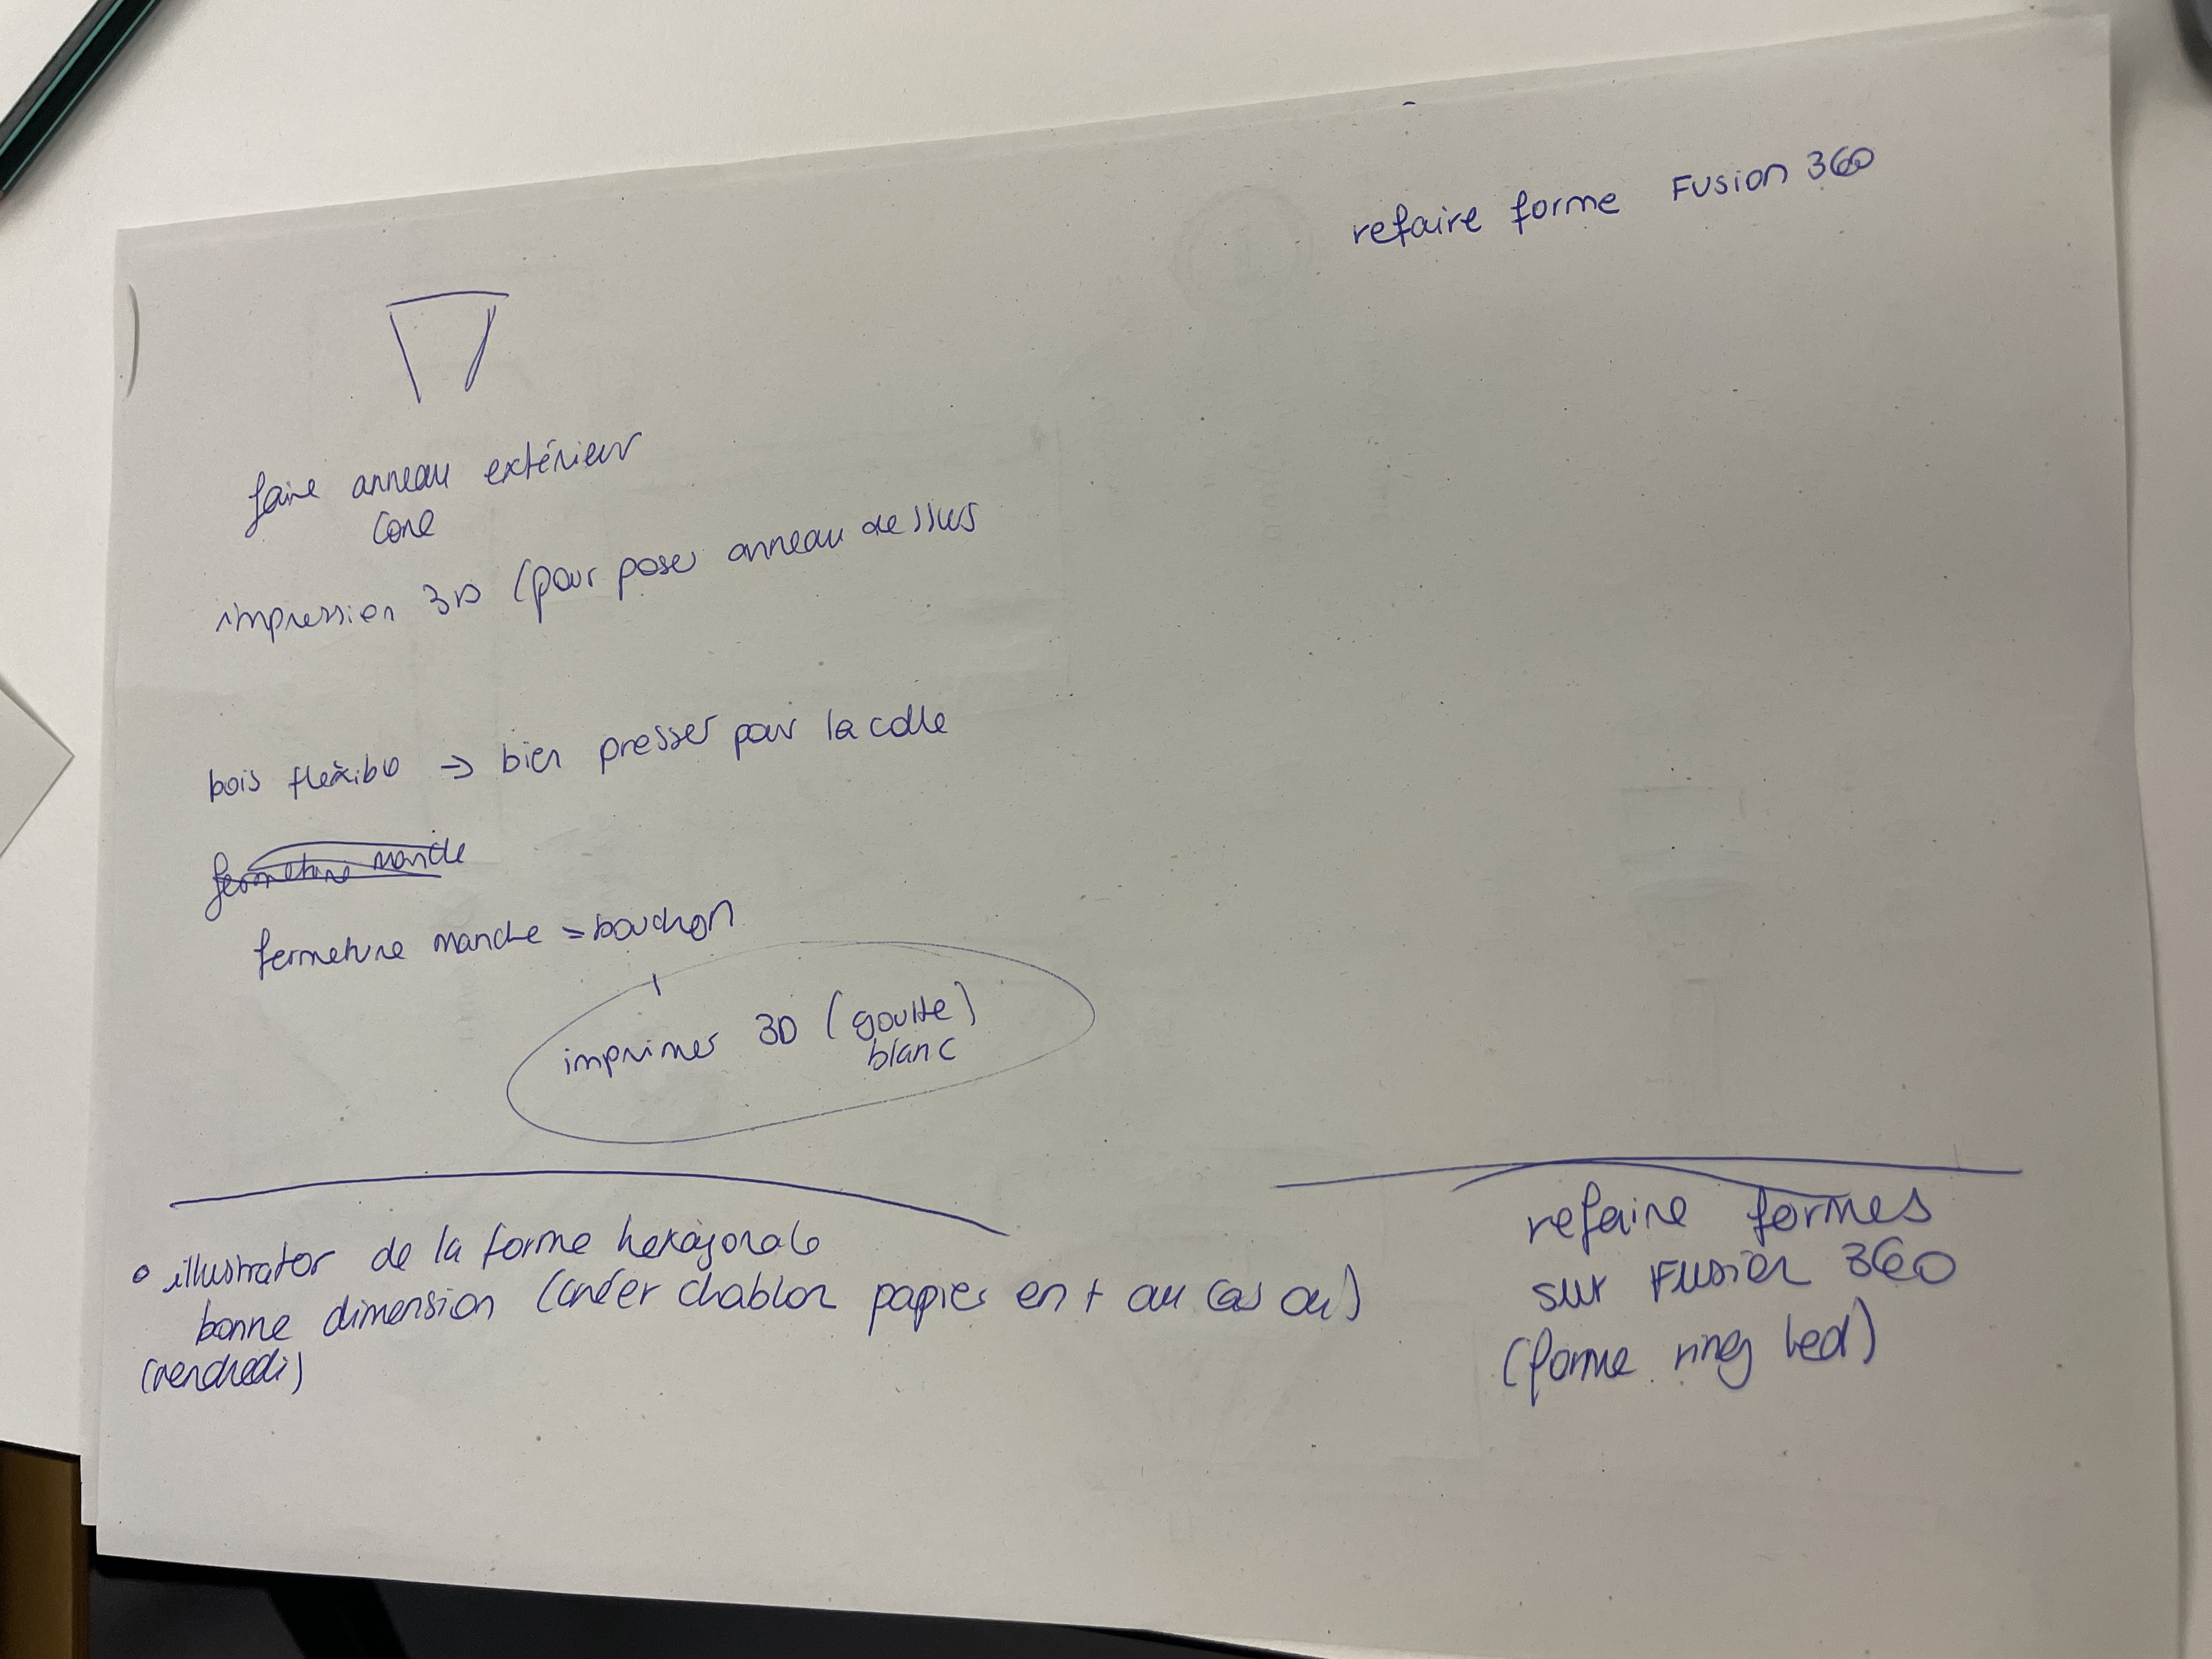 refaire forme Fusion 360
faire anneau extérieur
cone
impression 3D (pour poser anneau dessus
bois flexible => bien presser pour la colle
fermeture manche = bouchon
imprimer 3D (goutte)
blanc
o illustrator de la forme hexagonale
bonne dimension (créer chablon papier en + au cas ou)
(vendredi)
refaire formes
sur Fusion 360
(forme ring led)